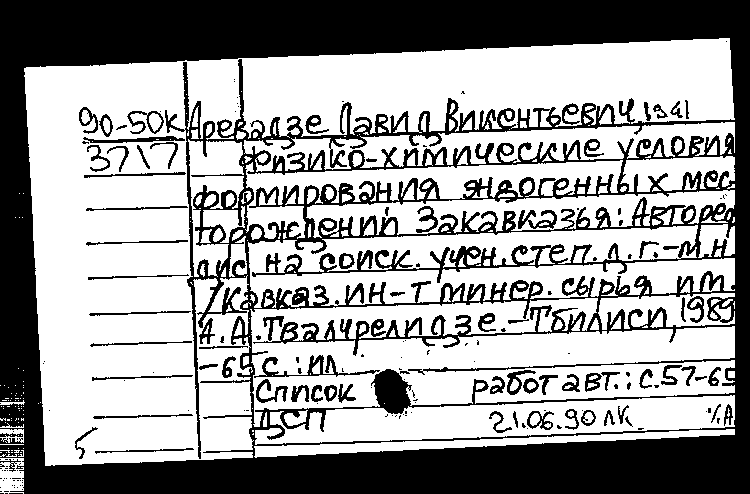 90-50К Аревадзе Давид Викентьевич, 1941
3717 Физико-химические условия
формирования эндогенных мес-
торождений Закавказья: Авторед
дис. на соиск. учен. степ. д. г.-м.н.
/Кавказ. ин-т минер. сырья им.
А.А. Твалчрелидзе.-Тбилиси, 1989
-65 с.: ил
Список работ авт.: с.57-65
ДСП 21.06.90 ЛК
5